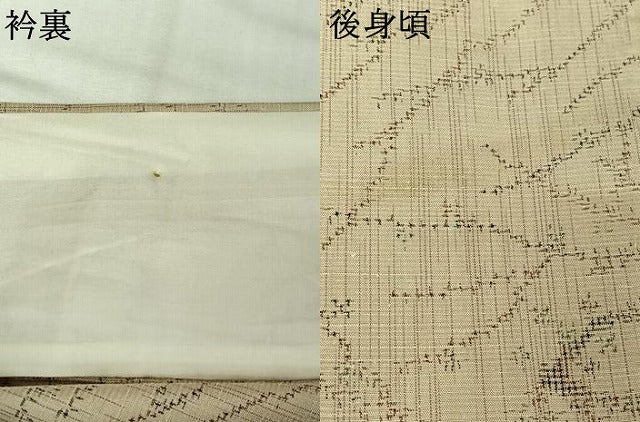 衿裏
後身頃